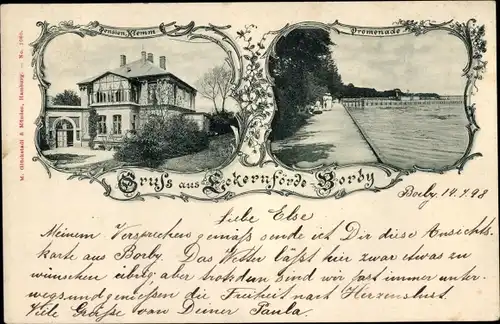 Pension Klemm
Promenade
M. Glückstadt & Münden, Hamburg.
Gruss aus Eckernförde-Borby
Borby 14.7.98
Liebe Else
Meinem Versprechen gemäss sende ich Dir diese Ansichts-
karte aus Borby. Das Wetter läßt hier zwar etwas zu
wünschen übrig aber trotzdem sind wir fast immer unter-
wegs und genießen die Freiheit nach Herzenslust.
Viele Grüße von Deiner Paula.